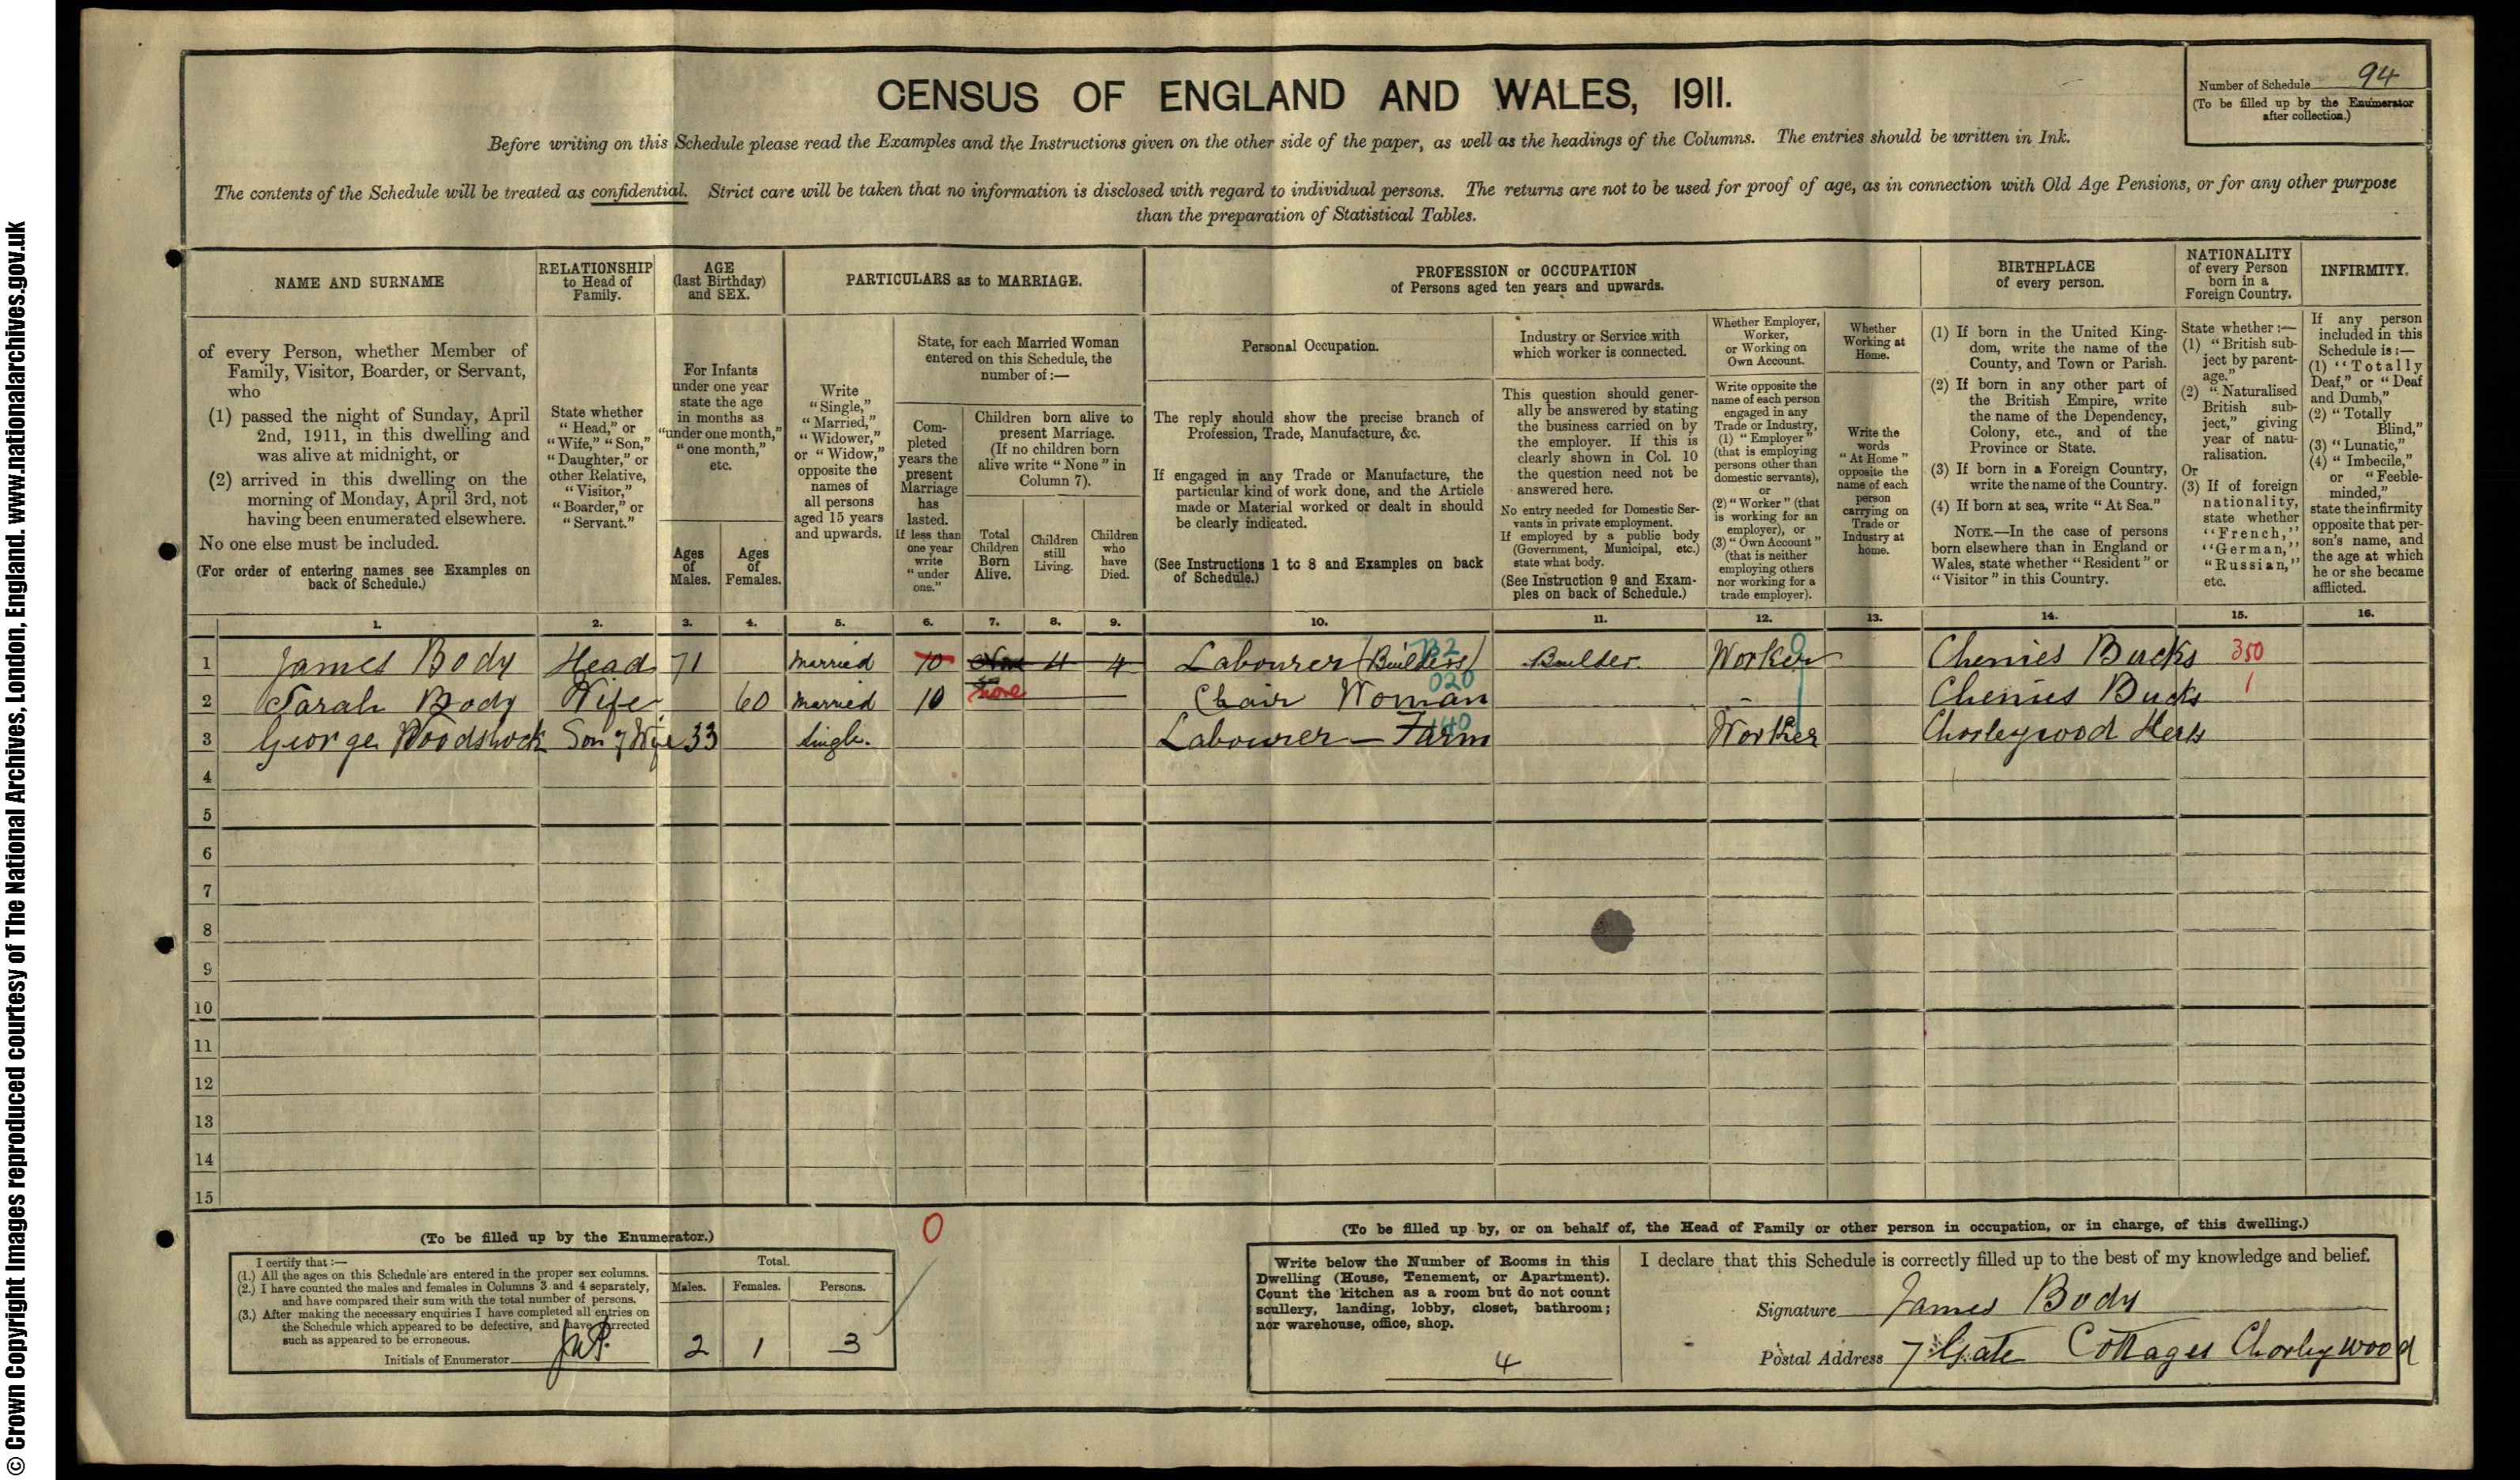 © Crown Copyright Images reproduced courtesy of The National Archives, London, England. www.nationalarchives.gov.uk
CENSUS OF ENGLAND AND WALES, 1911.
Number of Schedule 94
(To be filled up by the Enumerator
after collection.)
Before writing on this Schedule please read the Examples and the Instructions given on the other side of the paper, as well as the headings of the Columns. The entries should be written in Ink.
The contents of the Schedule will be treated as confidential. Strict care will be taken that no information is disclosed with regard to individual persons. The returns are not to be used for proof of age, as in connection with Old Age Pensions, or for any other purpose
than the preparation of Statistical Tables.
NAME AND SURNAME
of every Person, whether Member of
Family, Visitor, Boarder, or Servant,
who
(1) passed the night of Sunday, April
2nd, 1911, in this dwelling and
was alive at midnight, or
(2) arrived in this dwelling on the
morning of Monday, April 3rd, not
having been enumerated elsewhere.
No one else must be included.
(For order of entering names see Examples on
back of Schedule.)
RELATIONSHIP
to Head of
Family.
State whether
"Head," or
"Wife," "Son,"
"Daughter," or
other Relative,
"Visitor,"
"Boarder," or
"Servant."
AGE
(last Birthday)
and SEX.
For Infants
under one year
state the age
in months as
"under one month,"
"one month,"
etc.
Ages
of
Males.
Ages
of
Females.
PARTICULARS as to MARRIAGE.
Write
"Single,"
"Married,"
"Widower,"
or "Widow,"
opposite the
names of
all persons
aged 15 years
and upwards.
State, for each Married Woman
entered on this Schedule, the
number of:—
Com-
pleted
years the
present
Marriage
has
lasted.
If less than
one year
write
"under
one."
Children born alive to
present Marriage.
(If no children born
alive write "None" in
Column 7).
Total
Children
Born
Alive.
Children
still
Living.
Children
who
have
Died.
PROFESSION or OCCUPATION
of Persons aged ten years and upwards.
Personal Occupation.
The reply should show the precise branch of
Profession, Trade, Manufacture, &c.
If engaged in any Trade or Manufacture, the
particular kind of work done, and the Article
made or Material worked or dealt in should
be clearly indicated.
(See Instructions 1 to 8 and Examples on back
of Schedule.)
Industry or Service with
which worker is connected.
This question should gener-
ally be answered by stating
the business carried on by
the employer. If this is
clearly shown in Col. 10
the question need not be
answered here.
No entry needed for Domestic Ser-
vants in private employment.
If employed by a public body
(Government, Municipal, etc.)
state what body.
(See Instruction 9 and Exam-
ples on back of Schedule.)
Whether Employer,
Worker,
or Working on
Own Account.
Write opposite the
name of each person
engaged in any
Trade or Industry,
(1) "Employer"
(that is employing
persons other than
domestic servants),
or
(2) "Worker" (that
is working for an
employer), or
(3) "Own Account"
(that is neither
employing others
nor working for a
trade employer).
Whether
Working at
Home.
Write the
words
"At Home"
opposite the
name of each
person
carrying on
Trade or
Industry at
home.
BIRTHPLACE
of every person.
(1) If born in the United King-
dom, write the name of the
County, and Town or Parish.
(2) If born in any other part of
the British Empire, write
the name of the Dependency,
Colony, etc., and of the
Province or State.
(3) If born in a Foreign Country,
write the name of the Country.
(4) If born at sea, write "At Sea."
NOTE.—In the case of persons
born elsewhere than in England or
Wales, state whether "Resident" or
"Visitor" in this Country.
NATIONALITY
of every Person
born in a
Foreign Country.
State whether:—
(1) "British sub-
ject by parent-
age."
(2) "Naturalised
British sub-
ject," giving
year of natu-
ralisation.
Or
(3) If of foreign
nationality,
state whether
"French,"
"German,"
"Russian,"
etc.
INFIRMITY.
If any person
included in this
Schedule is:—
(1) "Totally
Deaf," or "Deaf
and Dumb,"
(2) "Totally
Blind,"
(3) "Lunatic,"
(4) "Imbecile,"
or "Feeble-
minded,"
state the infirmity
opposite that per-
son's name, and
the age at which
he or she became
afflicted.
1. 2. 3. 4. 5. 6. 7. 8. 9. 10. 11. 12. 13. 14. 15. 16.
1 James Body Head 71 Married 10 4 4 Labourer (Builders) Builder Worker Chenies Bucks 350
2 Sarah Body Wife 60 Married 10 none — Chair Woman 020 — Chenies Bucks 1
3 George Woodstock Son of Wife 33 Single. Labourer — Farm 140 Worker Chorleywood Herts
4
5
6
7
8
9
10
11
12
13
14
15
0
(To be filled up by the Enumerator.)
I certify that:—
(1.) All the ages on this Schedule are entered in the proper sex columns.
(2.) I have counted the males and females in Columns 3 and 4 separately,
and have compared their sum with the total number of persons.
(3.) After making the necessary enquiries I have completed all entries on
the Schedule which appeared to be defective, and have corrected
such as appeared to be erroneous.
Initials of Enumerator
Total.
Males. Females. Persons.
2 1 3
(To be filled up by, or on behalf of, the Head of Family or other person in occupation, or in charge, of this dwelling.)
Write below the Number of Rooms in this
Dwelling (House, Tenement, or Apartment).
Count the kitchen as a room but do not count
scullery, landing, lobby, closet, bathroom;
nor warehouse, office, shop.
4
I declare that this Schedule is correctly filled up to the best of my knowledge and belief.
Signature James Body
Postal Address 7 Gate Cottages Chorleywood